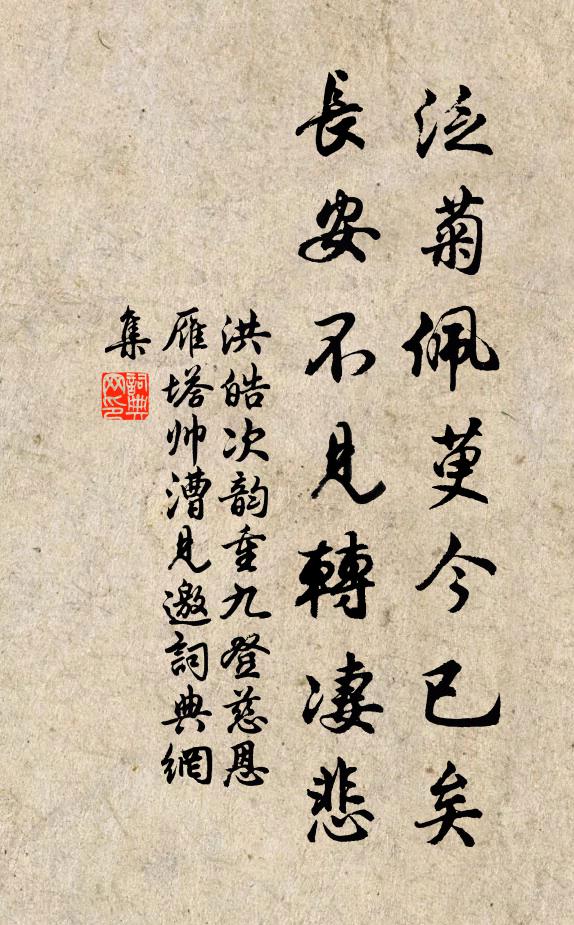 泛菊佩萸今已矣
長安不見轉淒悲
洪皓次韵重九登慈恩
雁塔帅漕見邀詞典網
集
詞典
网印